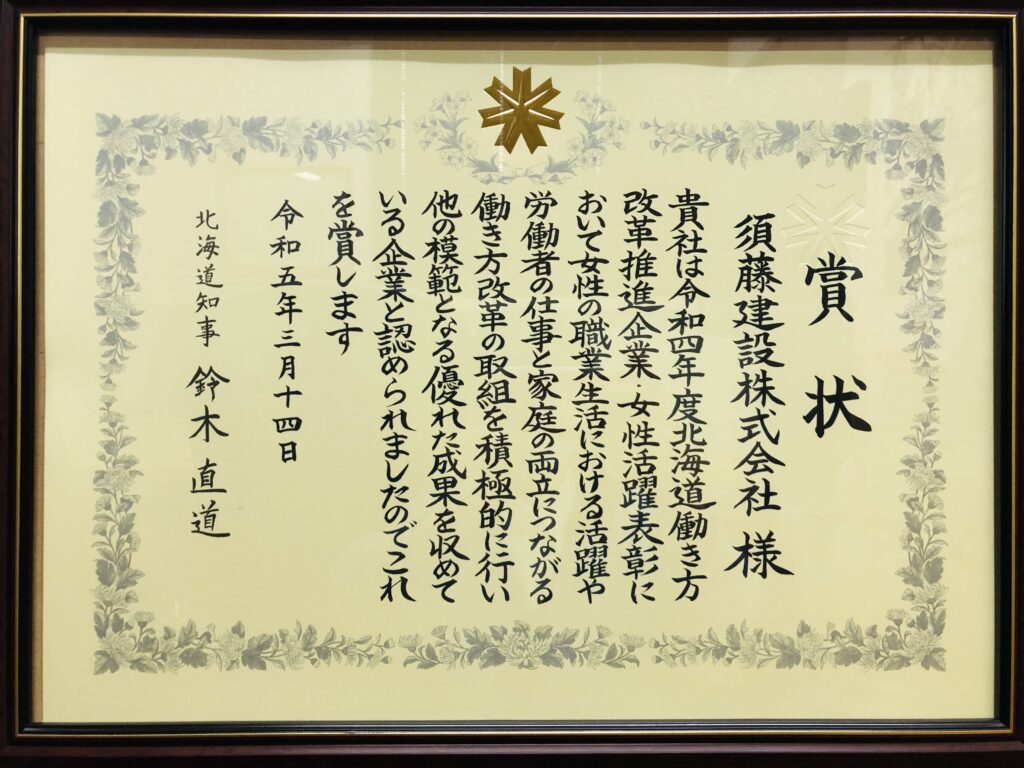 賞状
須藤建設株式会社 様
貴社は令和四年度北海道働き方
改革推進企業・女性活躍表彰に
おいて女性の職業生活における活躍や
労働者の仕事と家庭の両立につながる
働き方改革の取組を積極的に行い
他の模範となる優れた成果を収めて
いる企業と認められましたのでこれ
を賞します
令和五年三月十四日
北海道知事 鈴木直道